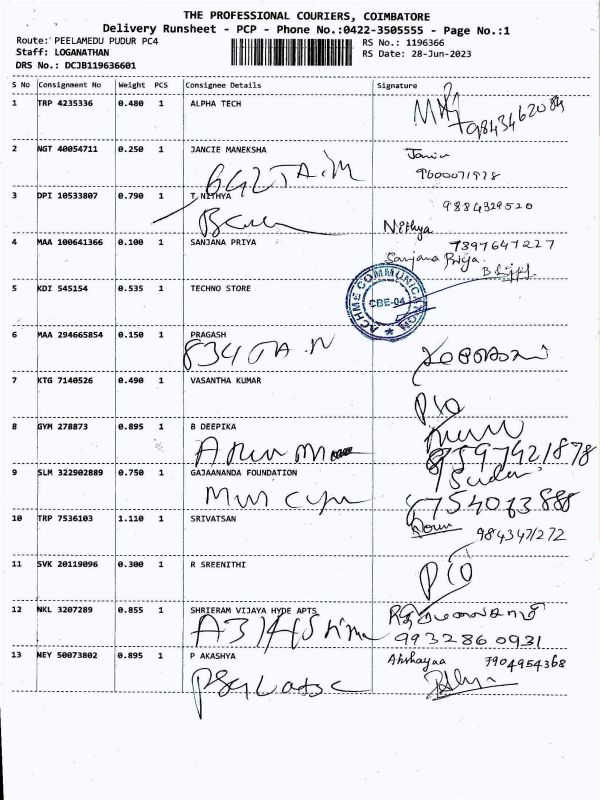 THE PROFESSIONAL COURIERS, COIMBATORE
Delivery Runsheet - PCP - Phone No.:0422-3505555 - Page No.:1
Route: PEELAMEDU PUDUR PC4
RS No.: 1196366
Staff: LOGANATHAN
RS Date: 28-Jun-2023
DRS No.: DCJB119636601
S No Consignment No Weight PCS Consignee Details Signature
1 TRP 4235336 0.480 1 ALPHA TECH
9843462084
2 NGT 40054711 0.250 1 JANCIE MANEKSHA
9600071928
3 DPI 10533807 0.790 1 T NITHYA
9884329520
Nithya
4 MAA 100641366 0.100 1 SANJANA PRIYA
7397647227
Sanjana Priya
5 KDI 545154 0.535 1 TECHNO STORE
ACHME COMMUNICATION
CBE-04
6 MAA 294665854 0.150 1 PRAGASH
7 KTG 7140526 0.490 1 VASANTHA KUMAR
8 GYM 278873 0.895 1 B DEEPIKA
9597421878
9 SLM 322902889 0.750 1 GAJAANANDA FOUNDATION
10 TRP 7536103 1.110 1 SRIVATSAN
9843471272
11 SVK 20119096 0.300 1 R SREENITHI
12 NKL 3207289 0.855 1 SHRIERAM VIJAYA HYDE APTS
9932860931
13 NEY 50073802 0.895 1 P AKASHYA
Akshayaa 7904954368